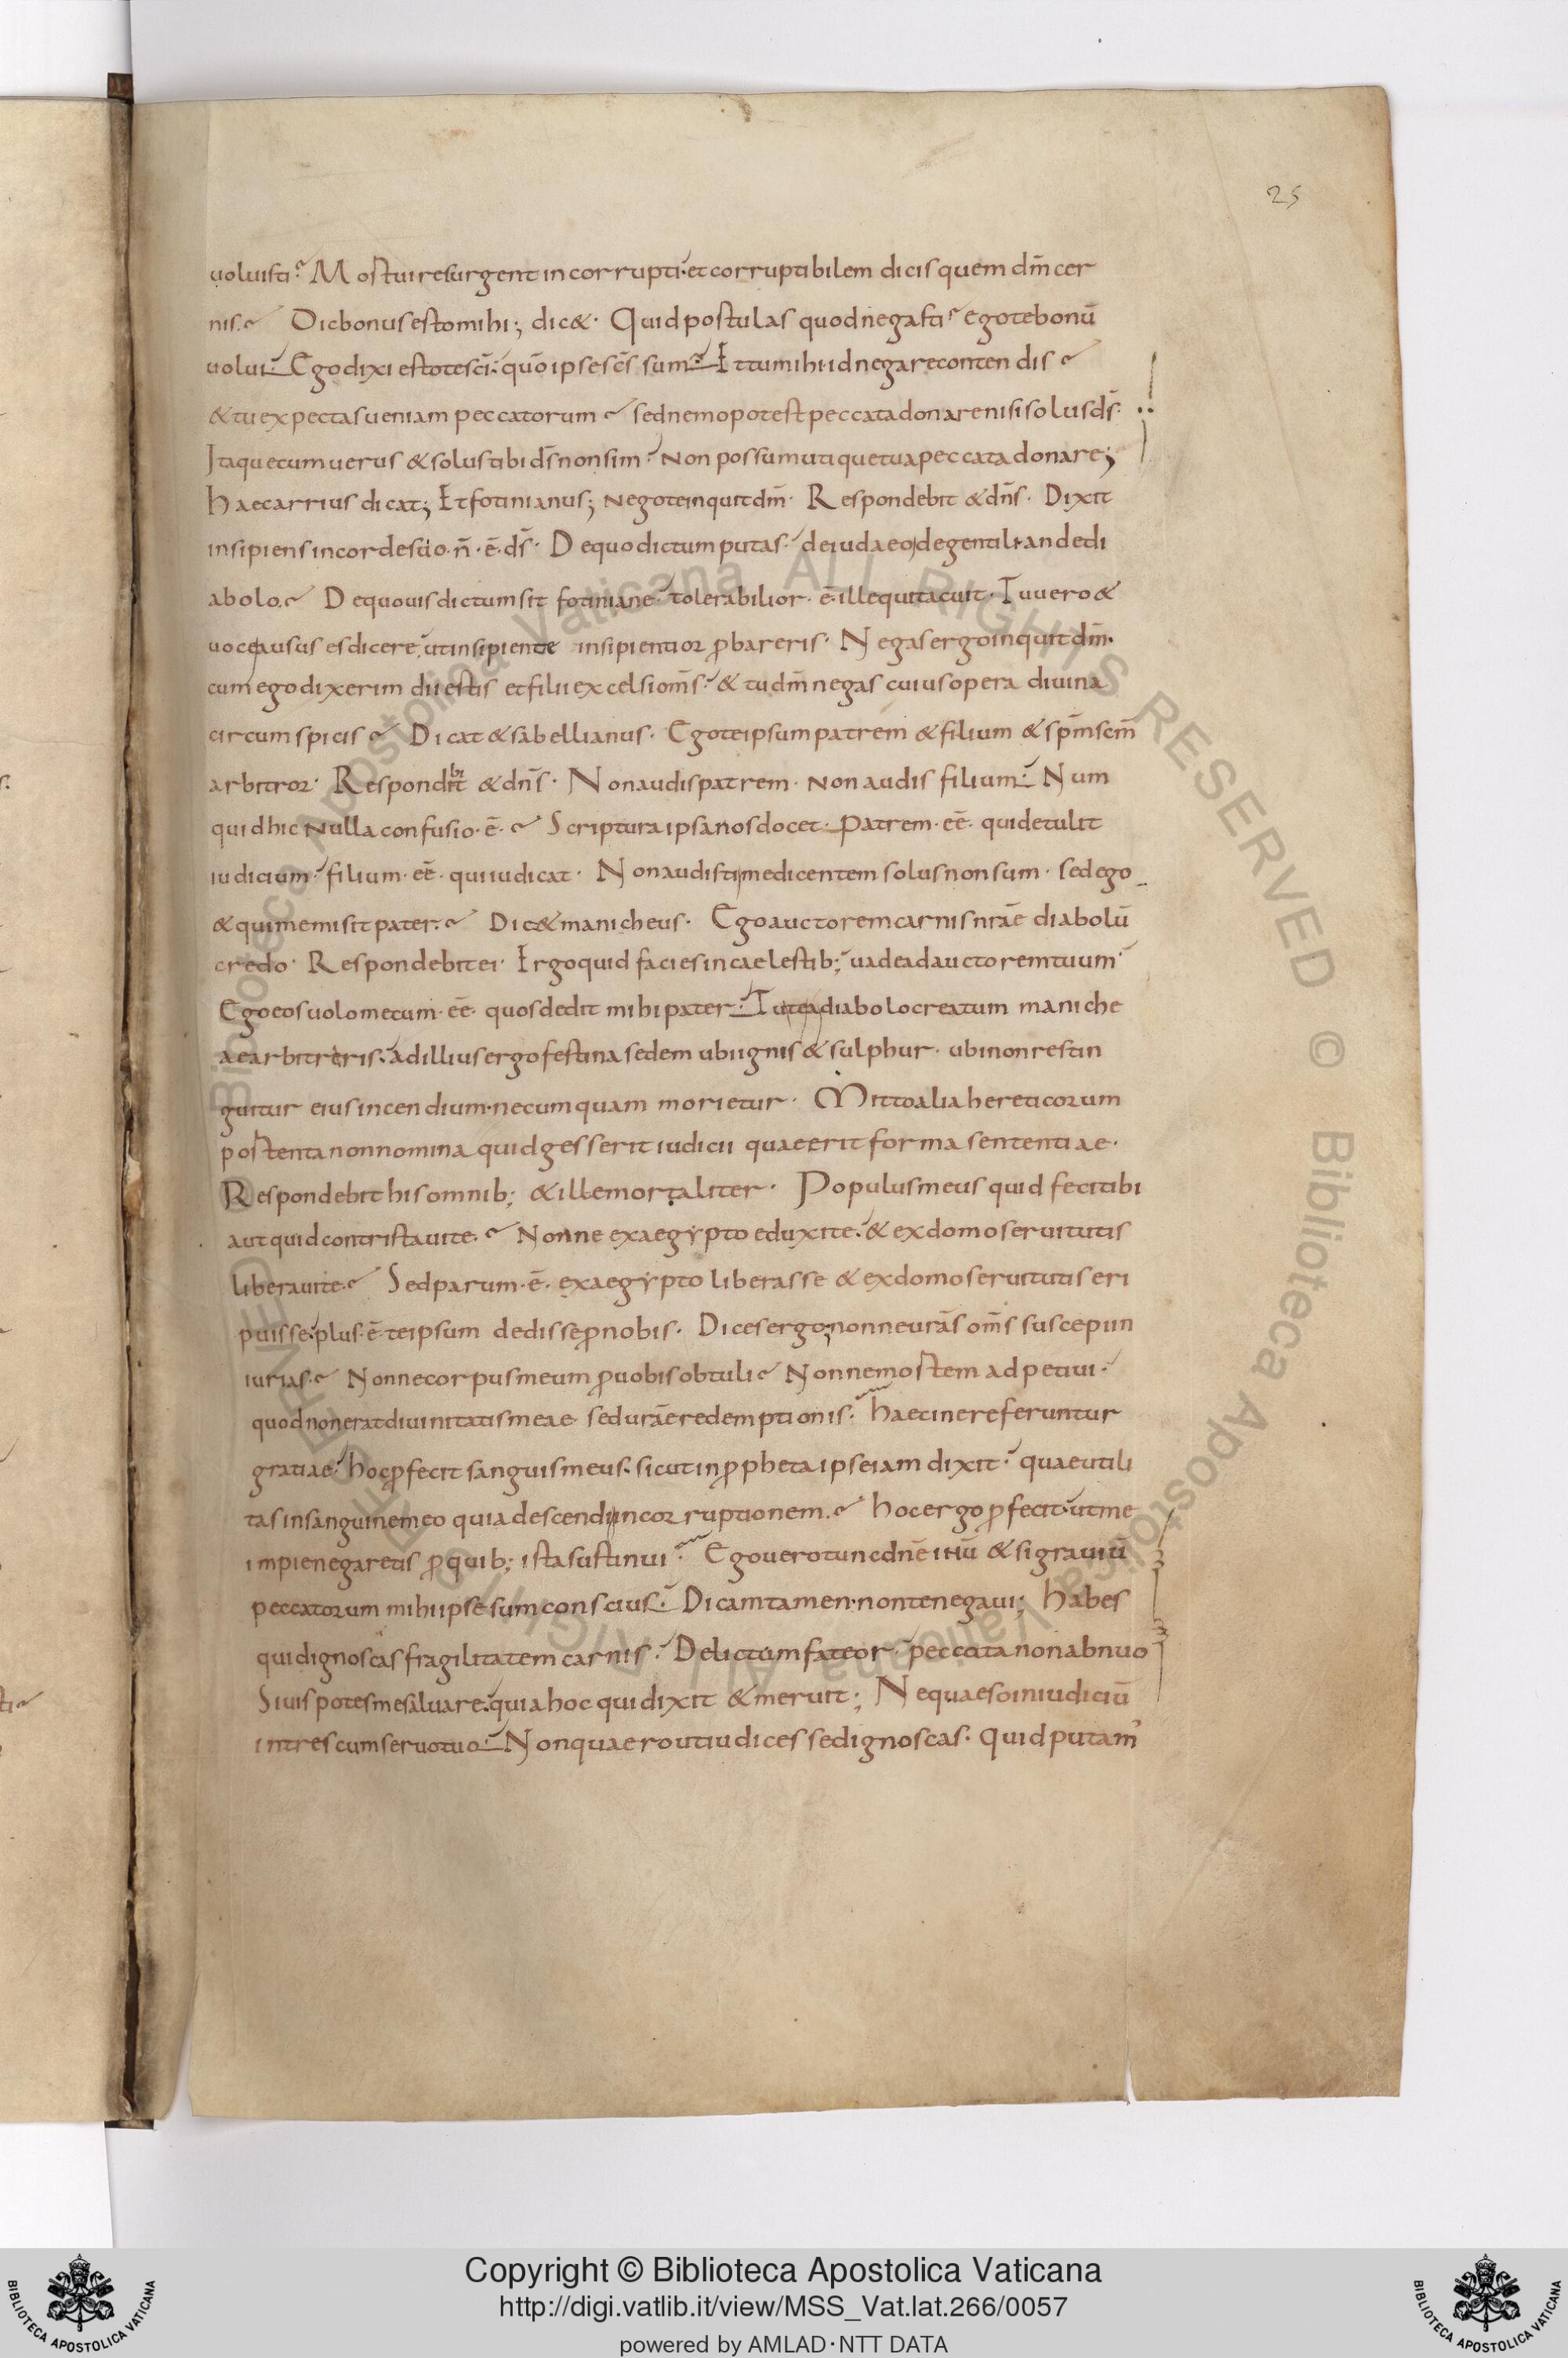 25
uoluisti? Mortui resurgent incorrupti· et corruptibilem dicis quem dm̄ cer
nis? Dic bonus esto mihi; dic&· Quid postulas quod negasti? ego te bonū
uolui. Ego dixi estote sc̄i· quō ipse sc̄s sum. Et tu mihi id negare contendis?
& tu expectas ueniam peccatorum? sed nemo potest peccata donare nisi solus ds̄·
Itaque cum uerus & solus tibi ds̄ non sim· Non possum utique tua peccata donare;
Haec arrius dicat; Et fotinianus; Nego te inquit dm̄· Respondebit & dn̄s· Dixit
insipiens in corde suo· n̄· ē· ds̄· De quo dictum putas· de iudaeo, de gentili· an de di
abolo? De quouis dictum sit fotiniane· tolerabilior· ē· ille qui tacuit· Tu uero &
uoce ausus es dicere, ut insipiente insipientior p̄bareris· Negas ergo inquit dm̄·
cum ego dixerim dii estis et filii excelsi om̄s? & tu dm̄ negas cuius opera diuina
circumspicis? Dicat & sabellianus· Ego te ipsum patrem & filium & spm̄ scm̄
arbitror· Respondebit & dn̄s· Non audis patrem· non audis filium· Num
quid hic nulla confusio· ē·? Scriptura ipsa nos docet· Patrem· eē· qui detulit
iudicium· filium· eē· qui iudicat· Non audisti me dicentem solus non sum· sed ego
& qui me misit pater? Dic& manicheus· Ego auctorem carnis nrāe diabolū
credo· Respondebit ei· Ergo quid facies in caelestib;· uade ad auctorem tuum·
Ego eos uolo mecum· eē· quos dedit mihi pater· Tu te a diabolo creatum maniche
ae arbitreris· ad illius ergo festina sedem ubi ignis & sulphur· ubi non restin
guitur eius incendium· nec umquam morietur· Mitto alia hereticorum
portenta non nomina quid gesserit iudicii quae erit forma sententiae·
Respondebit his omnib; & ille mortaliter· Populus meus quid feci tibi
aut quid contristaui te·? Nonne ex aegypto eduxi te· & ex domo seruitutis
liberaui te? Sed parum· ē· ex aegypto liberasse & ex domo seruitutis eri
puisse· plus· ē· te ipsum dedisse p̄ nobis· Dices ergo; nonne urās om̄s suscepi in
iurias? Nonne corpus meum p̄ uobis obtuli? Nonne mortem adpetiui·
quod non erat diuinitatis meae· sed urāe redemptionis· haecine referuntur
gratiae· hoc p̄fecit sanguis meus· sicut in p̄pheta ipse iam dixit· quae utili
tas in sanguine meo quia descendi in corruptionem? hoc ergo p̄fecit· ut me
impie negaretis p̄ quib; ista sustinui· Ego uero tunc dnē ih̄u & si grauiū
peccatorum mihi ipse sum conscius· Dicam tamen· non te negaui; Habes
qui dignoscas fragilitatem carnis· Delictum fateor· peccata non abnuo
Si uis potes me saluare· quia hoc qui dixit & meruit; Ne quaeso in iudiciū
intres cum seruo tuo· Non quaero ut iudices sed ignoscas· Quid putam̄
Copyright © Biblioteca Apostolica Vaticana
http://digi.vatlib.it/view/MSS_Vat.lat.266/0057
powered by AMLAD·NTT DATA
BIBLIOTECA APOSTOLICA VATICANA
BIBLIOTECA APOSTOLICA VATICANA